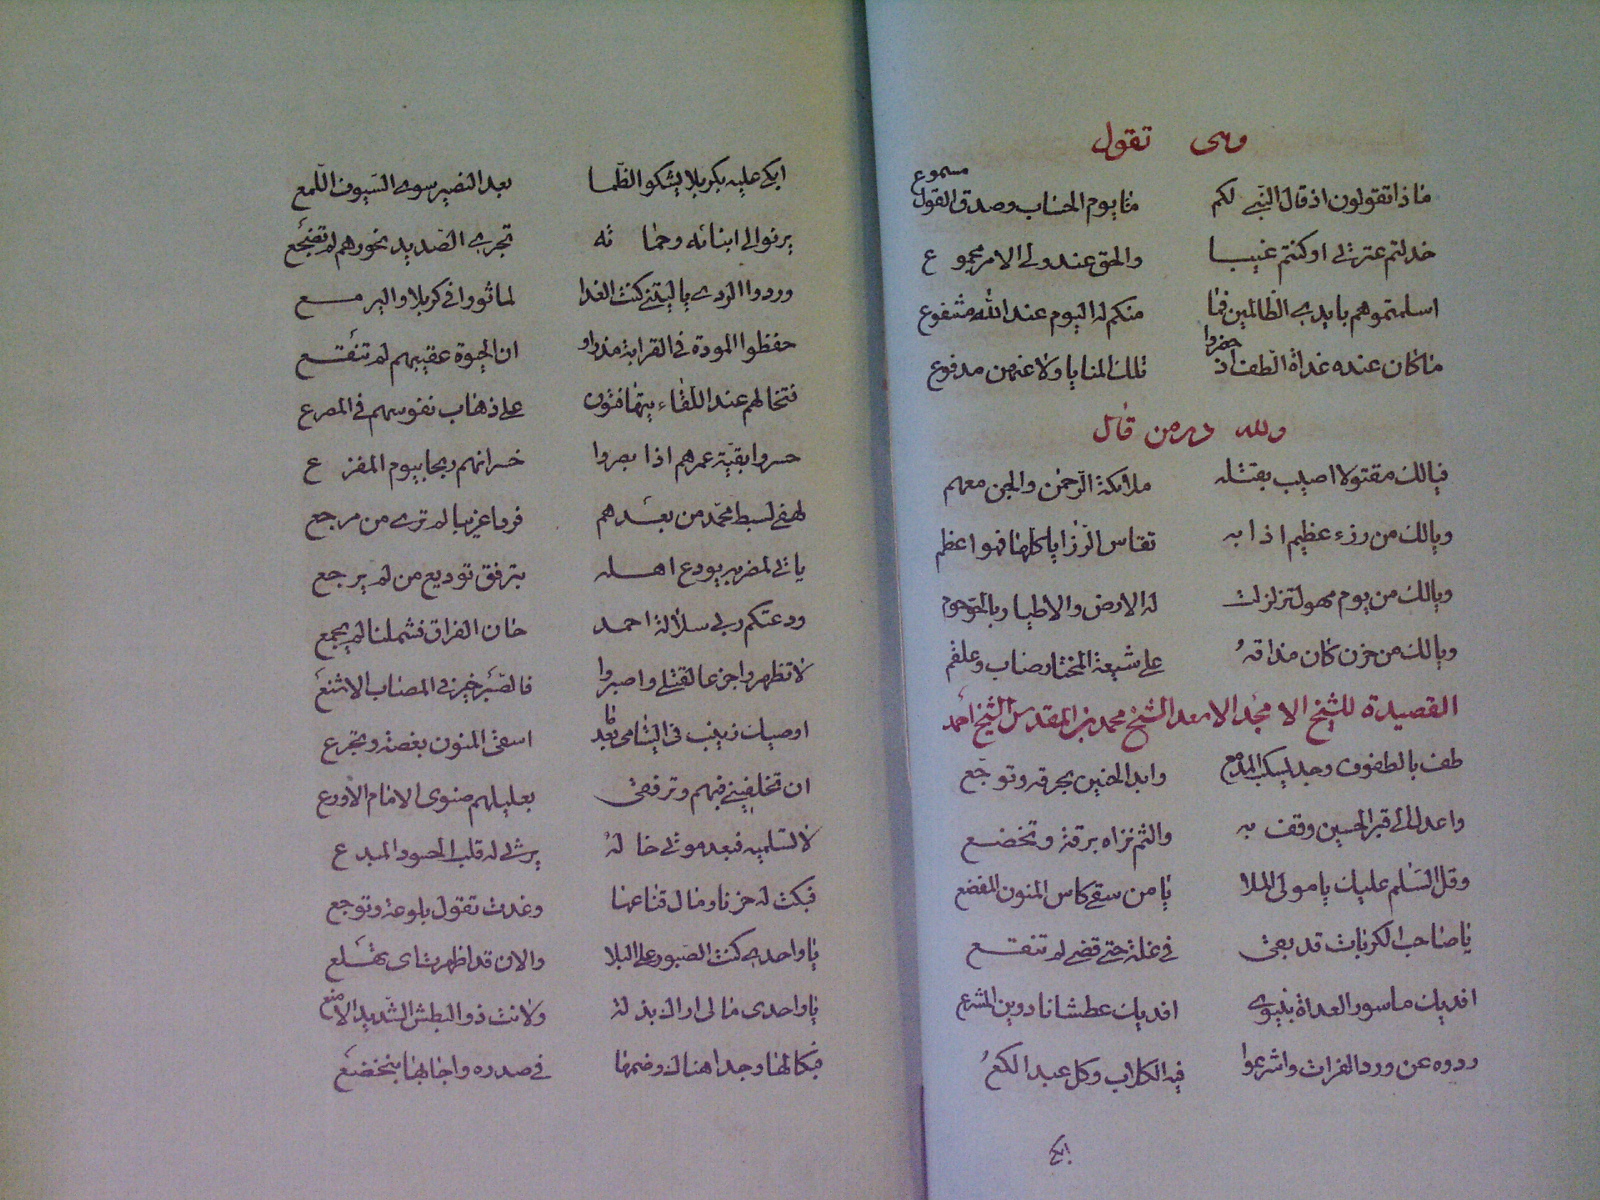 وهى تقول
ماذا تقولون اذ قال النبي لكم مثا يوم الحساب وصدق القول مسموع
خذلتم عترتي او كنتم غيبا والحق عند ولي الامر مجموع
اسلمتموهم بايدي الظالمين فما منكم له اليوم عند الله مشفوع
ماكان عنده غداة الطف اذ حضروا تلك المنايا ولا عنهن مدفوع
ولله در من قال
فيالك مقتولا اصيب بقتله ملائكة الرحمن والجن معهم
ويالك من رزء عظيم اذا به تقاس الرزايا كلها فهو اعظم
ويالك من يوم مهول تزلزلت له الارض والاطيار بالجو
ويالك من حزن كان مذاقه على شيعة المختار صاب وعلقم
القصيدة للشيخ الامجد الاسعد الشيخ محمد بن المقدس الشيخ احمد
طف بالطفوف وجد لسكب المدمع وابد الحنين بحرقة وتوجع
واعدل الى قبر الحسين وقف به والثم ثراه برقة وتخضع
وقل السلم عليك يا مولى الملا يا من سقي كاس المنون المفضع
يا صاحب الكربات قد بقى في غلة حتى قضى لم تنقع
افديك ماسور العداة بنينوى افديك عطشانا دوين المشرع
ردوه عن ورد الفرات واشرعوا فيه الكلاب وكل عبد الكع
ابكي
ابكي عليه بكربلا يشكو الظما بعد النصير سوى السيوف اللمع
يرنو الى ابنائه وحماته تجري الصديد نحورهم لم تضجع
وردوا الردى ياليتني كنت الفدا لما ثووا في كربلا واليرمع
حفظوا المودة في القرابة مذ راو ان الحيوة عقيبهم لم تنفع
فتخالهم عند اللقاء يتهافتون على ذهاب نفوسهم في المصرع
خسروا بقية عمرهم اذا بصروا خسرانهم ربحا بيوم المفزع
لهفي لسبط محمد من بعدهم فردا غريبا لم ترى من مرجع
ياتي لمضربه يودع اهله بترفق توديع من لم يرجع
ودعتكم ربي سلالة احمد حان الفراق فشملنا لم يجمع
لا تظهروا جزعا لقتلي واصبروا فالصبر خير في المصاب الاشنع
اوصيك زينب في اليتامى فابعد ما اسقى المنون بغصة وتجرع
ان تخلفيني فيهم وترفقى بعليلهم صنوى الامام الاورع
لا تسلميه فبعد موتي خاله يرثي له قلب الحسود المبدع
فبكت له حزنا ومال قناعها وغدت تقول بلوعة وتوجع
يا واحدي كنت الصبور على البلا والان قد اظهرت اى تهلع
يا واحدى مالى اراك بذلة ولانت ذو البطش الشديد الامنع
فبكا لها وجدا هنالك وضمها في صدره واجابها بتخضع